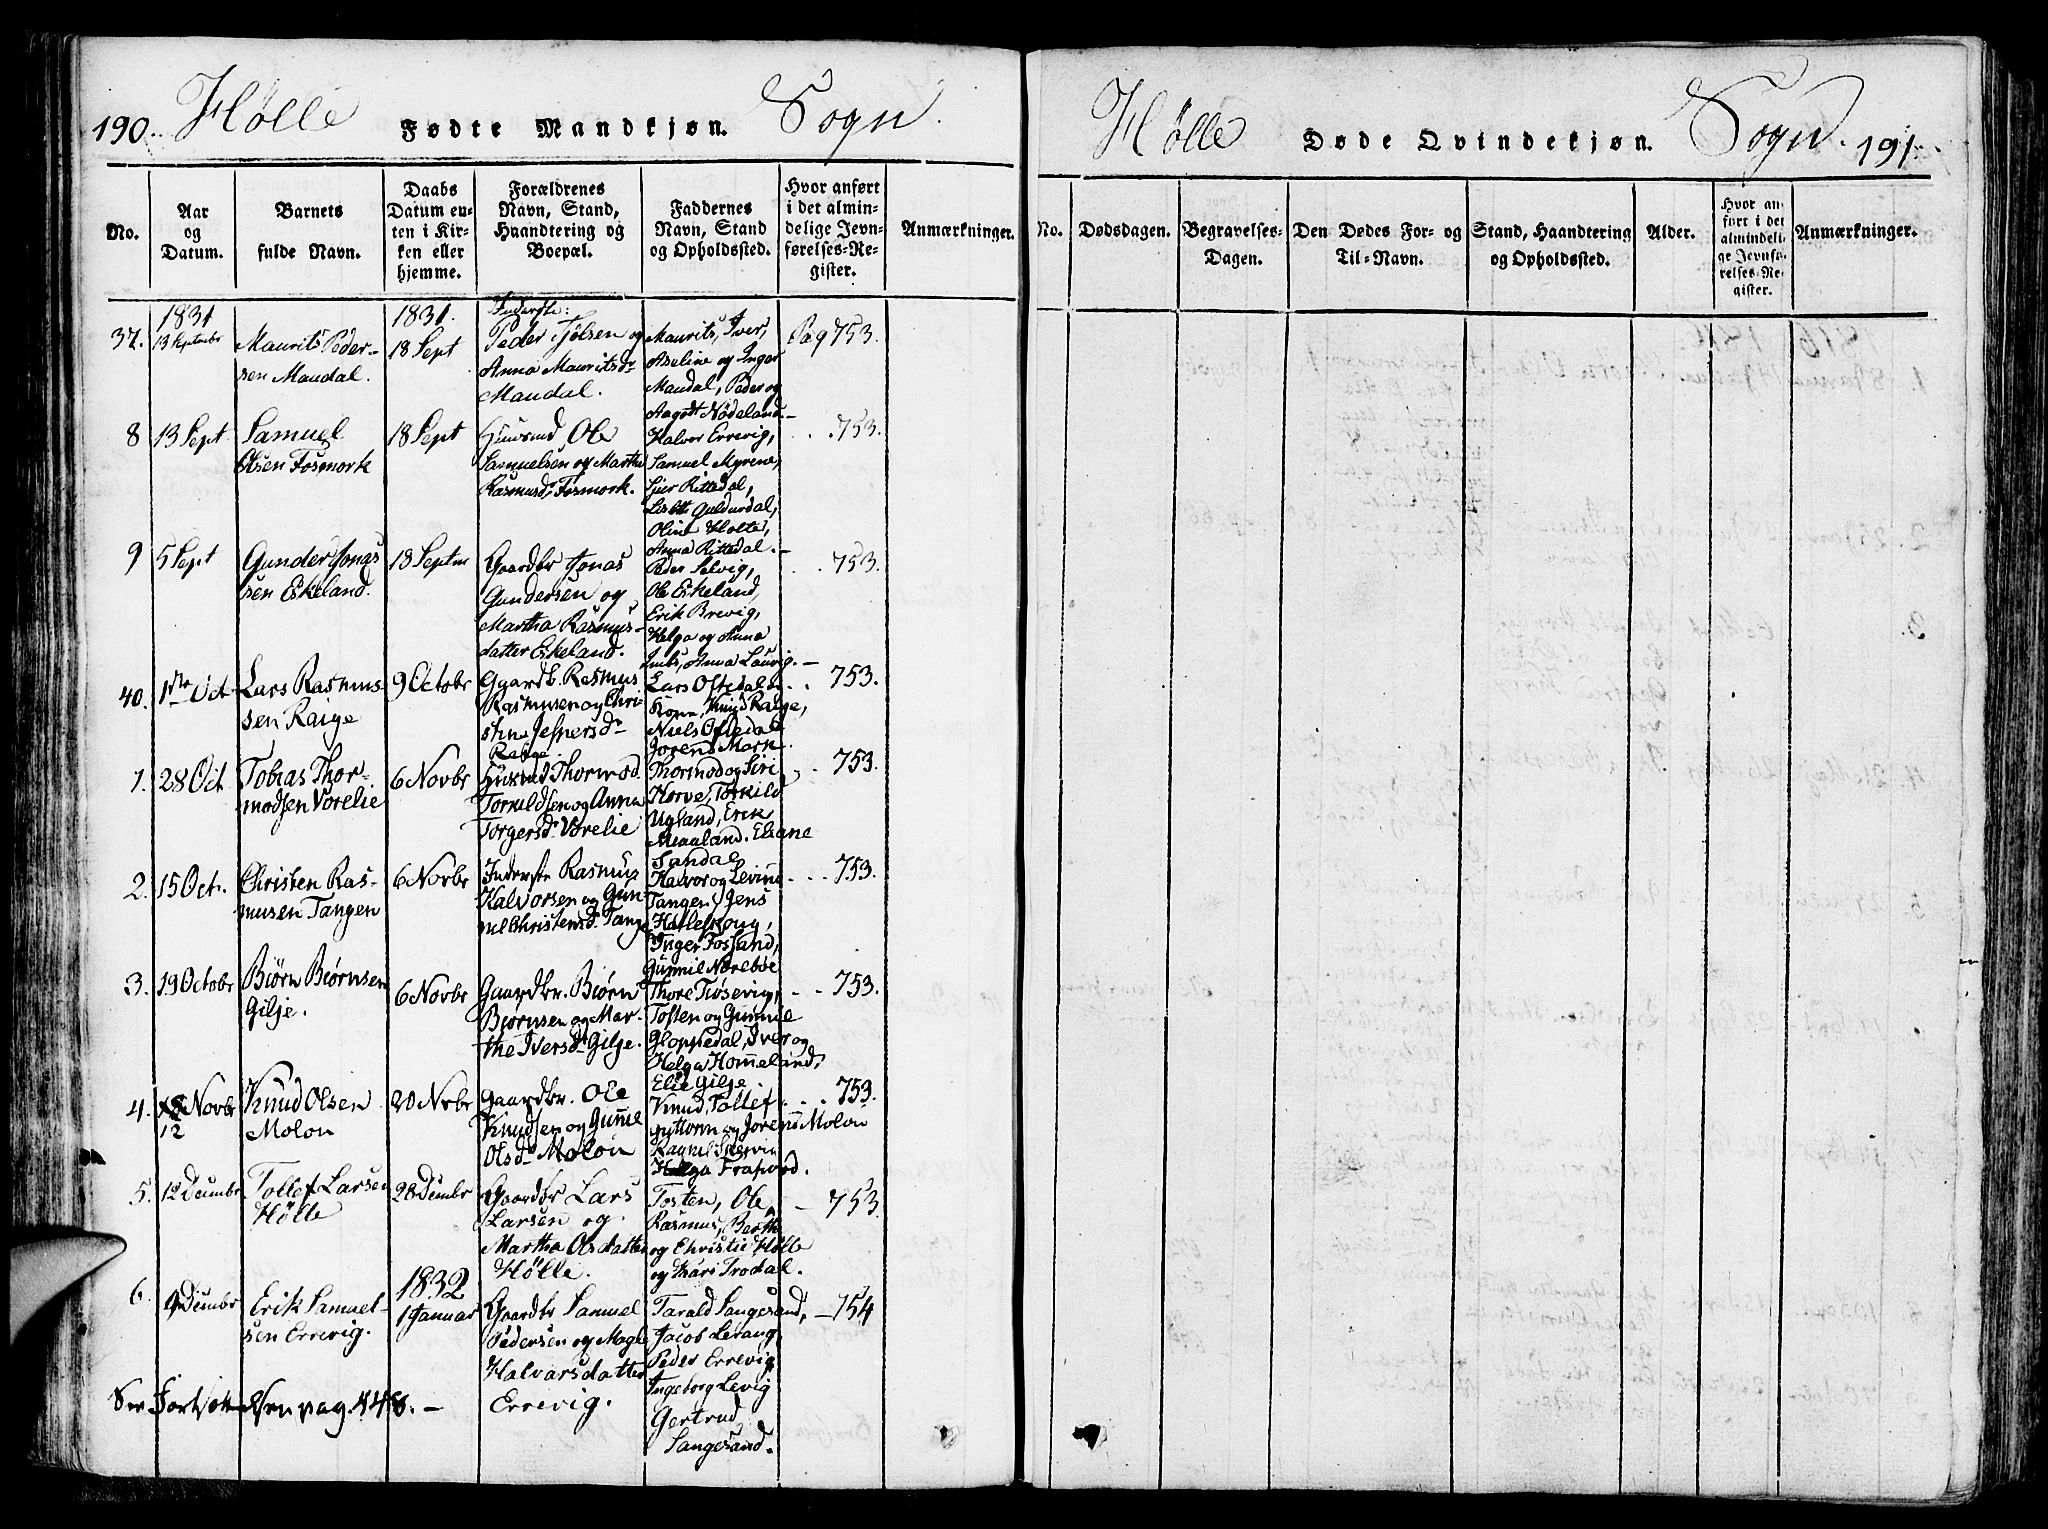 190. Hølle Fødte Mandkjøn. Sogn.
No.
Aar
og
Datum.
Barnets
fulde Navn.
Daabs
Datum en-
ten i Kir-
ken eller
hjemme.
Forældrenes
Navn, Stand,
Haandtering og
Boepæl.
Faddernes
Navn, Stand
og Opholdssted.
Hvor anført
i det almin-
delige Jevn-
førelses-Re-
gister.
Anmærkninger.
37.
1831
13 Septembr
Maurits Peder-
sen Maudal.
1831.
18 Sept
Inderste:
Peder Tjølsen og
Anna Mauritsdr
Maudal.
Maurits, Iver,
Aseline og Inger
Maudal, Peder og
Aagodt Nødeland.-
Pag 753.
8
13 Sept.
Samuel
Olsen Fosmork
18 Sept
Huusmd Ole
Samuelsen og Marthe
Rasmusd. Fosmork.
Halvor Errevig,
Samuel Myrene,
Siver Rittedal,
Lisbeth Guldurdal,
Oline Holte,
Anna Rittedal.-
. .753.
9
5 Sept
Gunder Jonas
sen Eskeland.
18 Septm
Gaardbr Jonas
Gundersen og
Martha Rasmus-
datter Eskeland.
Peder Selvig,
Ole Eskeland,
Erik Brevig,
Helga og Anna
Imbs, Anna Lauvig.-
. .753.
40.
1ste Oct
Lars Rasmus-
sen Raige
9 Octobr
Gaardb. Rasmus
Rasmusen og Chri-
stine Jespersdr
Raige
Lars Oftedal og
Kone, Knud Raige,
Niels Oftedal
Jorend Mark.
. . 753.
1.
28 Oct
Tobias Thor-
modsen Vorelie
6 Novbr
Huusmd Thormod
Torkildsen og Anna
Torgersd. Vorelie
Thormod og Siri
Horve, Torkild
Ugland, Erik
Meaaland. Eliane
Sandal
. . 753.
2.
15 Oct.
Christen Ras-
musen Tangen
6 Novbr
Inderste Rasmus
Halvorsen og Gun-
nil Christensd. Tange
Halvor og Levine
Tangen, Jens
Hatleskoug,
Inger Fossand,
Gunnil Nørebøe
. . . 753.
3.
19 Octobr
Biørn Biørnsen
Gilje.
6 Novbr
Gaardbr. Biørn
Biørnsen og Mar-
the Iversd. Gilje.
Thore Tiøsevig,
Tosten og Gunnil
Gloppedal, Iver og
Helga Hommeland,
Elie Gilje.
. . 753.
4.
18 Novbr
12
Knud Olsen
Molou
20 Nvbr
Gaardbr. Ole
Knudsen og Gunnil
Olsdr Molou
Knud, Tollef
Guttorm og Jorend Molou
Ragnil Skervig
Helga Frafiord.
. . . 753.
5.
12 Decembr
Tollef Larsen
Hølle
28 Decmbr
Gaardbr Lars
Larsen og
Martha Olsdatter
Hølle.
Tosten, Ole,
Rasmus, Berthe
og Christie Hølle
og Kari Trodal.
- 753.
6.
9 Decmbr
Erik Samuel-
sen Errevig.
1832
1 Januar
Gaardbr Samuel
Pedersen og Magle
Halvarsdatter
Errevig.
Tarald Sangesand,
Jacob Lerang,
Peder Errevig
Ingeborg Levig
Gertrud
Sangesand.
-754
See Fortsættelsen pag. 148.-
Hølle Døde Qvindekjøn. Sogn. 191.
No.
Dødsdagen.
Begravelses-
Dagen.
Den Dødes For- og
Til-Navn.
Stand, Haandtering
og Opholdssted.
Alder.
Hvor an-
ført i det
almindeli-
ge Jevnfø-
relses-Re-
gister.
Anmærkninger.